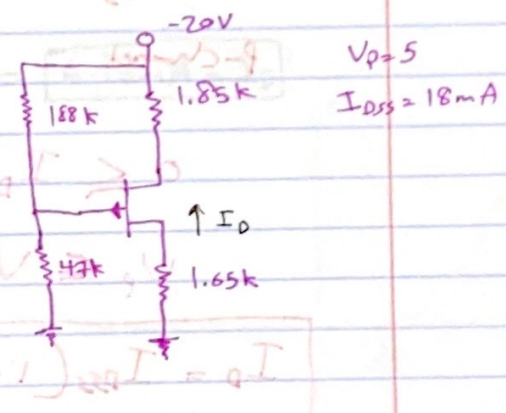 -20V
Vp = 5
188k
1.85k
IDSS = 18mA
↑ ID
47k
1.65k